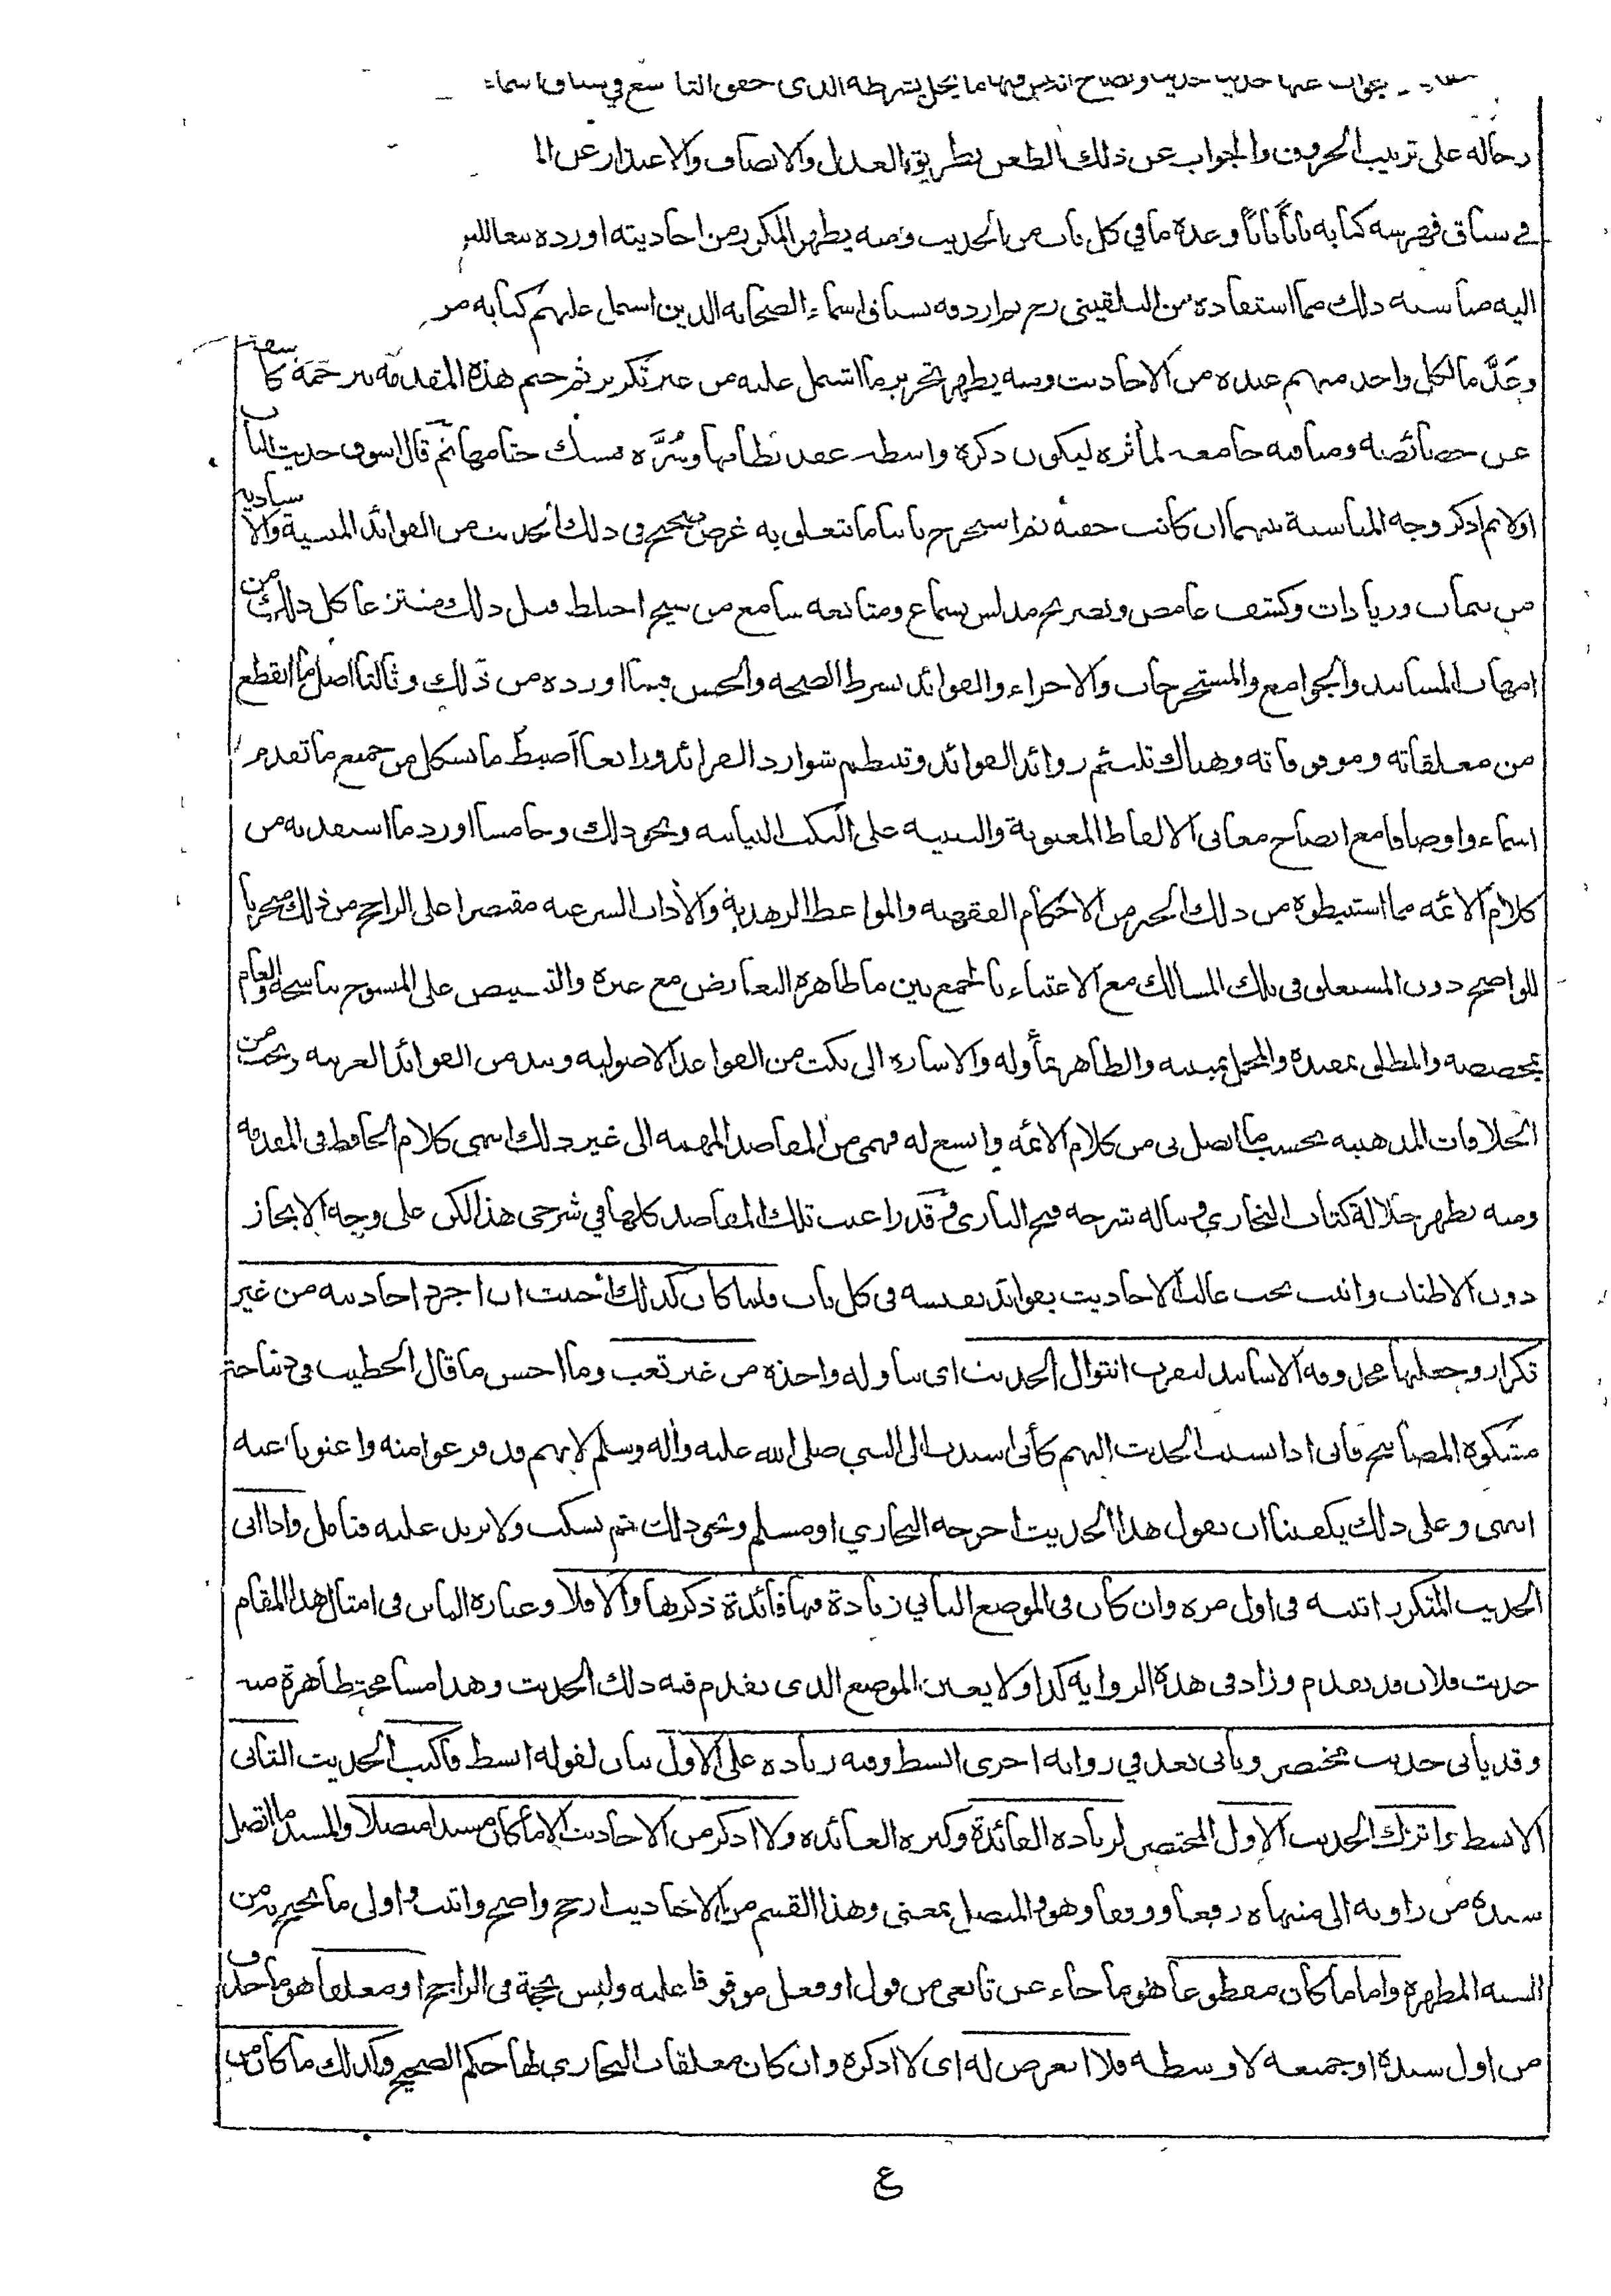 والجواب عنها حديثا حديثا وايضاح انه ليس فيها ما يخل بشرطه الذي حققه التاسع في سياق اسماء
رجاله على ترتيب الحروف والجواب عن ذلك الطعن بطريق العدل والانصاف والاعتذار عن الـ
في سياق فهرسه كتابه بابًا بابًا وعدة ما في كل باب من الحديث ومنه يظهر المكرر من احاديثه اورده تبعا
اليه مناسبة ذلك مما استفاده من البلقيني رح ثم اردفه بسياق اسماء الصحابه الذين اشتمل عليهم كتابه
وعَدَّ ما لكل واحد منهم عنده من الاحاديث وبه يظهر تحرير ما اشتمل عليه من غير تكرير ثم ختم هذه المقدمة بترجمة كاشفة
عن خصائصه ومناقبه جامعه لمآثره ليكون ذكره واسطه عقد نظامها وسُرَّه مسك ختامها ثم قال اسوق حديث الباب
اولا ثم اذكر وجه المناسبة بينهما ان كانت خفيه ثم استخرج ثانيا ما يتعلق به غرض صحيح في ذلك الحديث من الفوائد المتنية والاسنادية
من تتمات وزيادات وكشف غامض وتصريح مدلس بسماع ومتابعه سامع من شيخ اختلط قبل ذلك منتزعا كل ذلك من
امهات المسانيد والجوامع والمستخرجات والاجزاء والفوائد بشرط الصحه والحسن فيما اورده من ذلك وثالثا اصل ما انقطع
من معلقاته وموقوفاته وهناك تلتئم زوائد الفوائد وتنتظم شوارد الفرائد ورابعا اضبط ما يشكل من جميع ما تقدم
اسماء واوصافا مع ايضاح معاني الالفاظ اللغوية والتنبيه على النكت البيانيه ونحو ذلك وخامسا اورد ما استفدته من
كلام الائمه مما استنبطوه من ذلك الخبر من الاحكام الفقهيه والمواعظ الزهدية والآداب الشرعيه مقتصرا على الراجح من ذلك متحريا
للواضح دون المستغلق في تلك المسالك مع الاعتناء بالجمع بين ما ظاهره التعارض مع غيره والتنصيص على المنسوخ بناسخه والعام
بمخصصه والمطلق بمقيده والمجمل بمبينه والظاهر بمأوله والاشاره الى نكت من القواعد الاصوليه ونبذ من الفوائد العربيه ونخب من
الخلافات المذهبيه بحسب ما اتصل بي من كلام الائمه واتسع له فهمي من المقاصد المهمه الى غير ذلك انتهى كلام الحافظ في المقدمه
ومنه يظهر جلالة كتاب البخاري وجلاله شرحه فتح الباري وقد راعيت تلك المقاصد كلها في شرحي هذا لكن على وجه الايجاز
دون الاطناب واتيت تحت غالب الاحاديث بفوائد نفيسه في كل باب ولما كان كذلك احببت ان اجرد احاديثه من غير
تكرار وجعلتها محذوفه الاسانيد ليقرب انتوال الحديث اي تناوله واخذه من غير تعب وما احسن ما قال الخطيب في ديباجة
مشكوة المصابيح فاني اذا نسبت الحديث اليهم كأني اسندت الى النبي صلى الله عليه واله وسلم لانهم قد فرغوا منه واغنونا عنه
انتهى وعلى ذلك يكفينا ان نقول هذا الحديث اخرجه البخاري او مسلم ونحو ذلك ثم نسكت ولا نزيد عليه فتامل واذا اتى
الحديث المتكرر اثبته في اول مره وان كان في الموضع الثاني زيادة فيها فائدة ذكرتها والا فلا وعباره الناس في امثال هذا المقام
حديث فلان قد تقدم وزاد في هذه الروايه كذا ولا يعين الموضع الذي تقدم فيه ذلك الحديث وهذا مسامحة ظاهرة منه
وقد ياتي حديث مختصر وياتي بعد في روايه اخرى ابسط وفيه زياده على الاول بيان لقوله ابسط فاكتب الحديث الثاني
الابسط واترك الحديث الاول المختصر لزياده الفائدة وكثره العائده ولا اذكر من الاحاديث الا ما كان مسندا متصلا والمسند ما اتصل
سنده من راويه الى منتهاه رفعا ووقفا وهو والمتصل بمعنى وهذا القسم من الاحاديث ارجح واصح واثبت واولى ما يحتج به من
السنه المطهرة واما ما كان مقطوعا هو ما جاء عن تابعي من قول او فعل موقوفا عليه وليس بحجة في الراجح او معلقا هو ما حذف
من اول سنده او جميعه لا وسطه فلا اتعرض له اي لا اذكره وان كان معلقات البخاري لها حكم الصحيح وكذلك ما كان من
ع